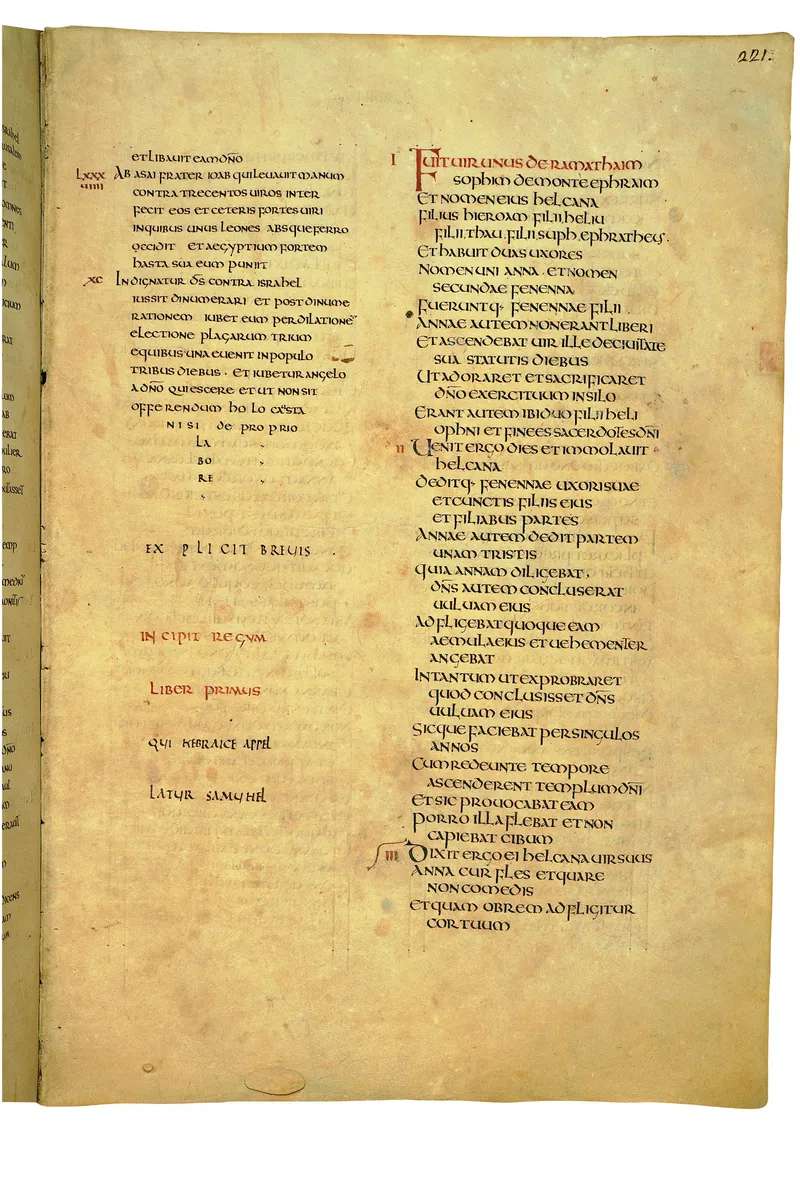 221.
ET LIBAUIT EAM DÑO
LXXXUIIII AB ASAI FRATER IOAB QUI LEUAUIT MANUM
CONTRA TRECENTOS UIROS INTER
FECIT EOS ET CETERIS FORTES UIRI
INQUIBUS UNUS LEONES ABSQUE FERRO
OCCIDIT ET AEGYPTIUM FORTEM
HASTA SUA EUM PUNIIT
XC INDIGNATUR D̄S CONTRA ISRAHEL
IUSSIT DINUMERARI ET POST DINUME
RATIONEM IUBET EUM PERDILATIONE
ELECTIONE PLAGARUM TRIUM
EQUIBUS UNA EUENIT IN POPULO
TRIBUS DIEBUS · ET IUBETUR ANGELO
A DÑO QUIESCERE ET UT NON SIT
OFFERENDUM HOLO
NISI DE PROPRIO
LA
BO
RE
EXPLICIT BREUIS
INCIPIT REGUM
LIBER PRIMUS
QUI HEBRAICE APPEL
LATUR SAMUHEL
I FUIT UIR UNUS DE RAMATHAIM
SOPHIM DE MONTE EPHRAIM
ET NOMEN EIUS HELCANA
FILIUS HIEROAM FILII HELIU
FILII THAU FILII SUPH EPHRATHEUS.
ET HABUIT DUAS UXORES
NOMEN UNI ANNA · ET NOMEN
SECUNDAE FENENNA
FUERUNTQ· FENENNAE FILII
ANNAE AUTEM NON ERANT LIBERI
ET ASCENDEBAT UIR ILLE DE CIUITATE
SUA STATUTIS DIEBUS
UT ADORARET ET SACRIFICARET
DÑO EXERCITUUM IN SILO
ERANT AUTEM IBI DUO FILII HELI
OPHNI ET FINEES SACERDOTES DÑI
II UENIT ERGO DIES ET IMMOLAUIT
HELCANA
DEDITQ· FENENNAE UXORI SUAE
ET CUNCTIS FILIIS EIUS
ET FILIABUS PARTES
ANNAE AUTEM DEDIT PARTEM
UNAM TRISTIS
QUIA ANNAM DILIGEBAT,
DÑS AUTEM CONCLUSERAT
UULUAM EIUS
ADFLIGEBAT QUOQUE EAM
AEMULA EIUS ET UEHEMENTER
ANGEBAT
IN TANTUM UT EXPROBRARET
QUOD CONCLUSISSET DÑS
UULUAM EIUS
SICQUE FACIEBAT PER SINGULOS
ANNOS
CUM REDEUNTE TEMPORE
ASCENDERENT TEMPLUM DÑI
ET SIC PROUOCABAT EAM
PORRO ILLA FLEBAT ET NON
CAPIEBAT CIBUM
III DIXIT ERGO EI HELCANA UIR SUUS
ANNA CUR FLES ET QUARE
NON COMEDIS
ET QUAM OBREM ADFLIGITUR
COR TUUM